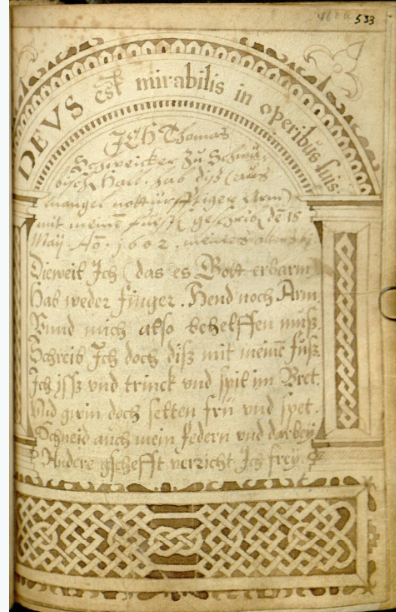 533
DEVS est mirabilis in operibus suis.
ICH Thomas
Schweicker Zu Schwä-
bisch Hall. hab diß (auß
mangel notturfftiger Arm)
mit meinē Fuess geschribē dē 15
Maij. Ao. 1602. meines
Dieweil Ich (das es Gott erbarm
Hab weder finger. Hend noch Arm,
Vnnd mich also behelffen muß.
Schreib Ich doch diß mit meinē fuß.
Ich jss vnd trinck vnd spil im Bret.
Vnd gwin doch selten frü vnd spet.
Schneid auch mein Federn vnd darbey
Andere gschefft verricht Ich frey.